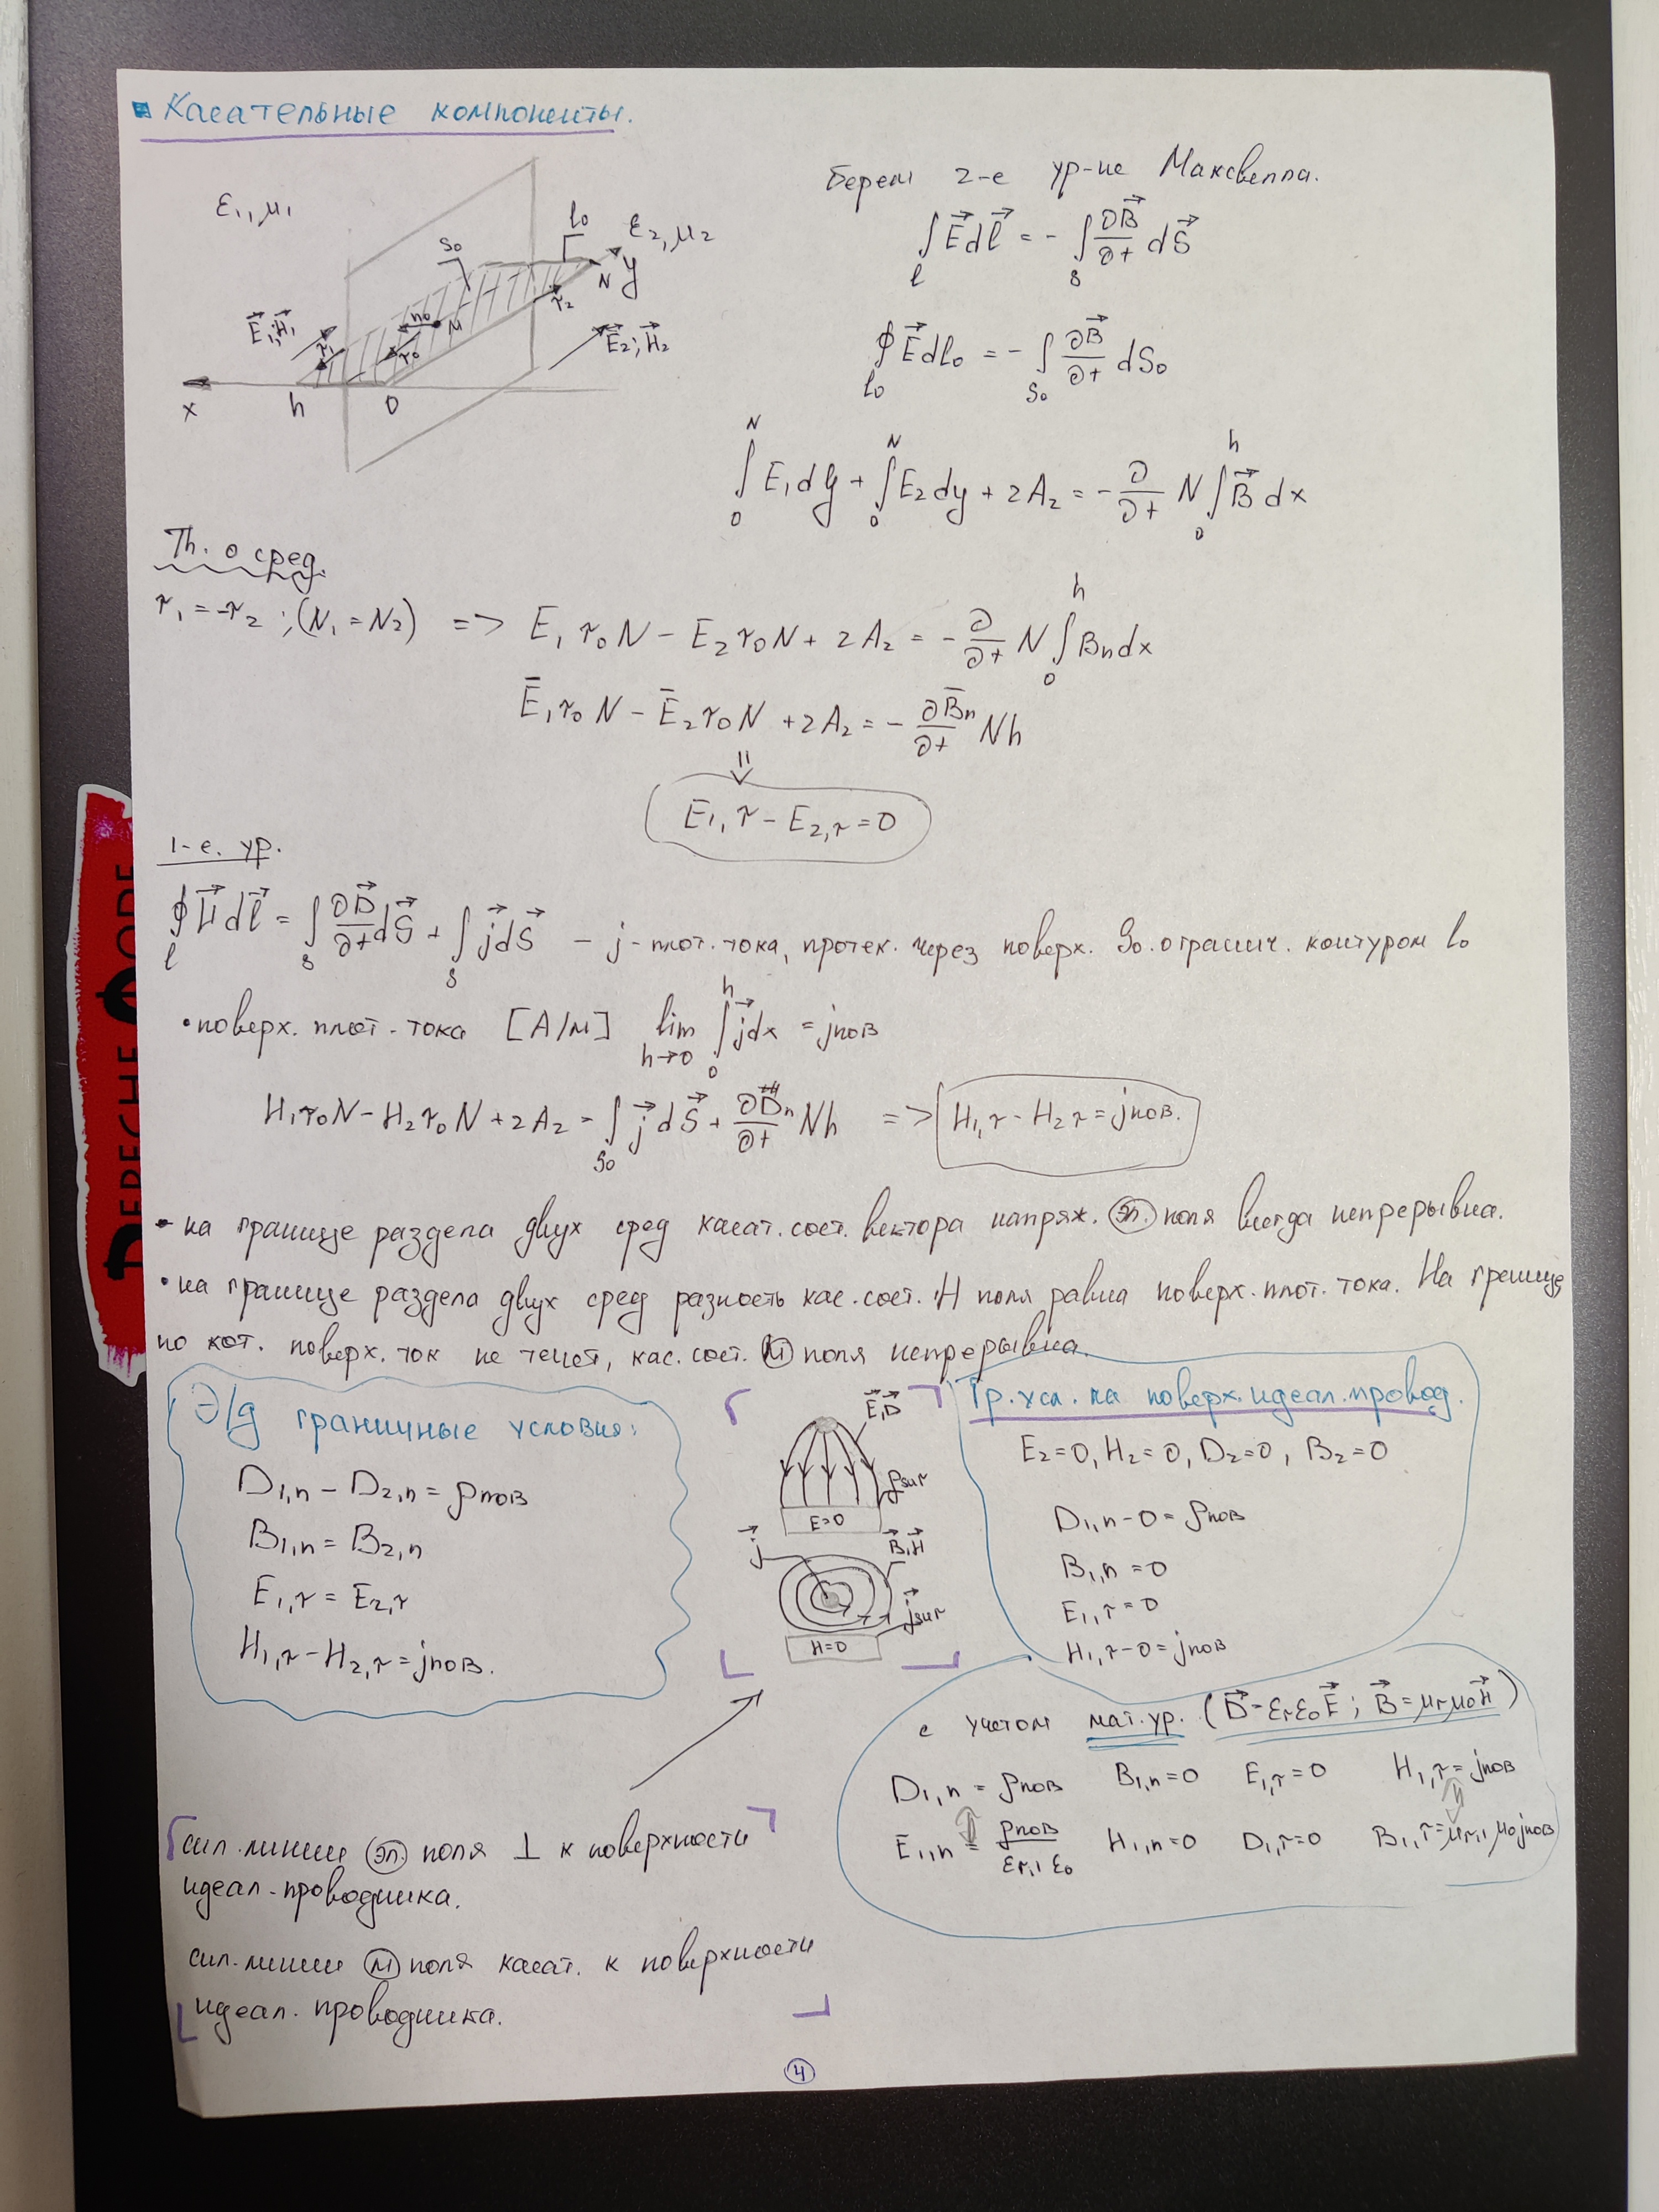 Касательные компоненты.
ε₁, μ₁
S₀
l₀
ε₂, μ₂
y
N
τ₂
n₀
M
τ₀
E⃗₁; H⃗₁
τ₁
E⃗₂; H⃗₂
x h 0
Берем 2-е ур-ие Максвелла.
∫_l E⃗dl⃗ = - ∫_s ∂B⃗/∂t dS⃗
∮_l₀ E⃗dl₀ = - ∫_S₀ ∂B⃗/∂t dS₀
∫₀^N E₁dy + ∫₀^N E₂dy + 2A₂ = - ∂/∂t N ∫₀^h B⃗dx
Th. о сред.
τ₁ = -τ₂ ; (N₁ = N₂) => E₁τ₀N - E₂τ₀N + 2A₂ = - ∂/∂t N ∫₀^h Bₙdx
Ē₁τ₀N - Ē₂τ₀N + 2A₂ = - ∂B̄ₙ/∂t Nh
E₁,τ - E₂,τ = 0
1-е. ур.
∮_l H⃗dl⃗ = ∫_s ∂D⃗/∂t dS⃗ + ∫_s j⃗dS⃗ - j - плот. тока, протек. через поверх. S₀. огранич. контуром l₀
• поверх. плот. тока [А/м] lim_h→0 ∫₀^h j⃗dx = jпов
H₁τ₀N - H₂τ₀N + 2A₂ = ∫_S₀ j⃗dS⃗ + ∂D⃗ₙ/∂t Nh => H₁,τ - H₂τ = jпов.
• на границе раздела двух сред касат. сост. вектора напряж. эл. поля всегда непрерывна.
• на границе раздела двух сред разность кас. сост. H поля равна поверх. плот. тока. На границе,
по кот. поверх. ток не течет, кас. сост. м поля непрерывна.
Э/д граничные условия:
D₁,n - D₂,n = ρпов
B₁,n = B₂,n
E₁,τ = E₂,τ
H₁,τ - H₂,τ = jпов.
E⃗,D⃗
ρsur
E=0
j⃗
B⃗,H⃗
j⃗sur
H=0
Гр. усл. на поверх. идеал. провод.
E₂=0, H₂=0, D₂=0, B₂=0
D₁,n - 0 = ρпов
B₁,n = 0
E₁,τ = 0
H₁,τ - 0 = jпов
с учетом мат. ур. (D⃗=εrε₀E⃗; B⃗=μrμ₀H⃗)
D₁,n = ρпов B₁,n=0 E₁,τ=0 H₁,τ = jпов
E₁,n = ρпов/εr,1 ε₀ H₁,n=0 D₁,τ=0 B₁,τ=μr,1 μ₀jпов
сил. линии эл. поля ⊥ к поверхности
идеал. проводника.
сил. линии м поля касат. к поверхности
идеал. проводника.
4
DEPECHE MODE